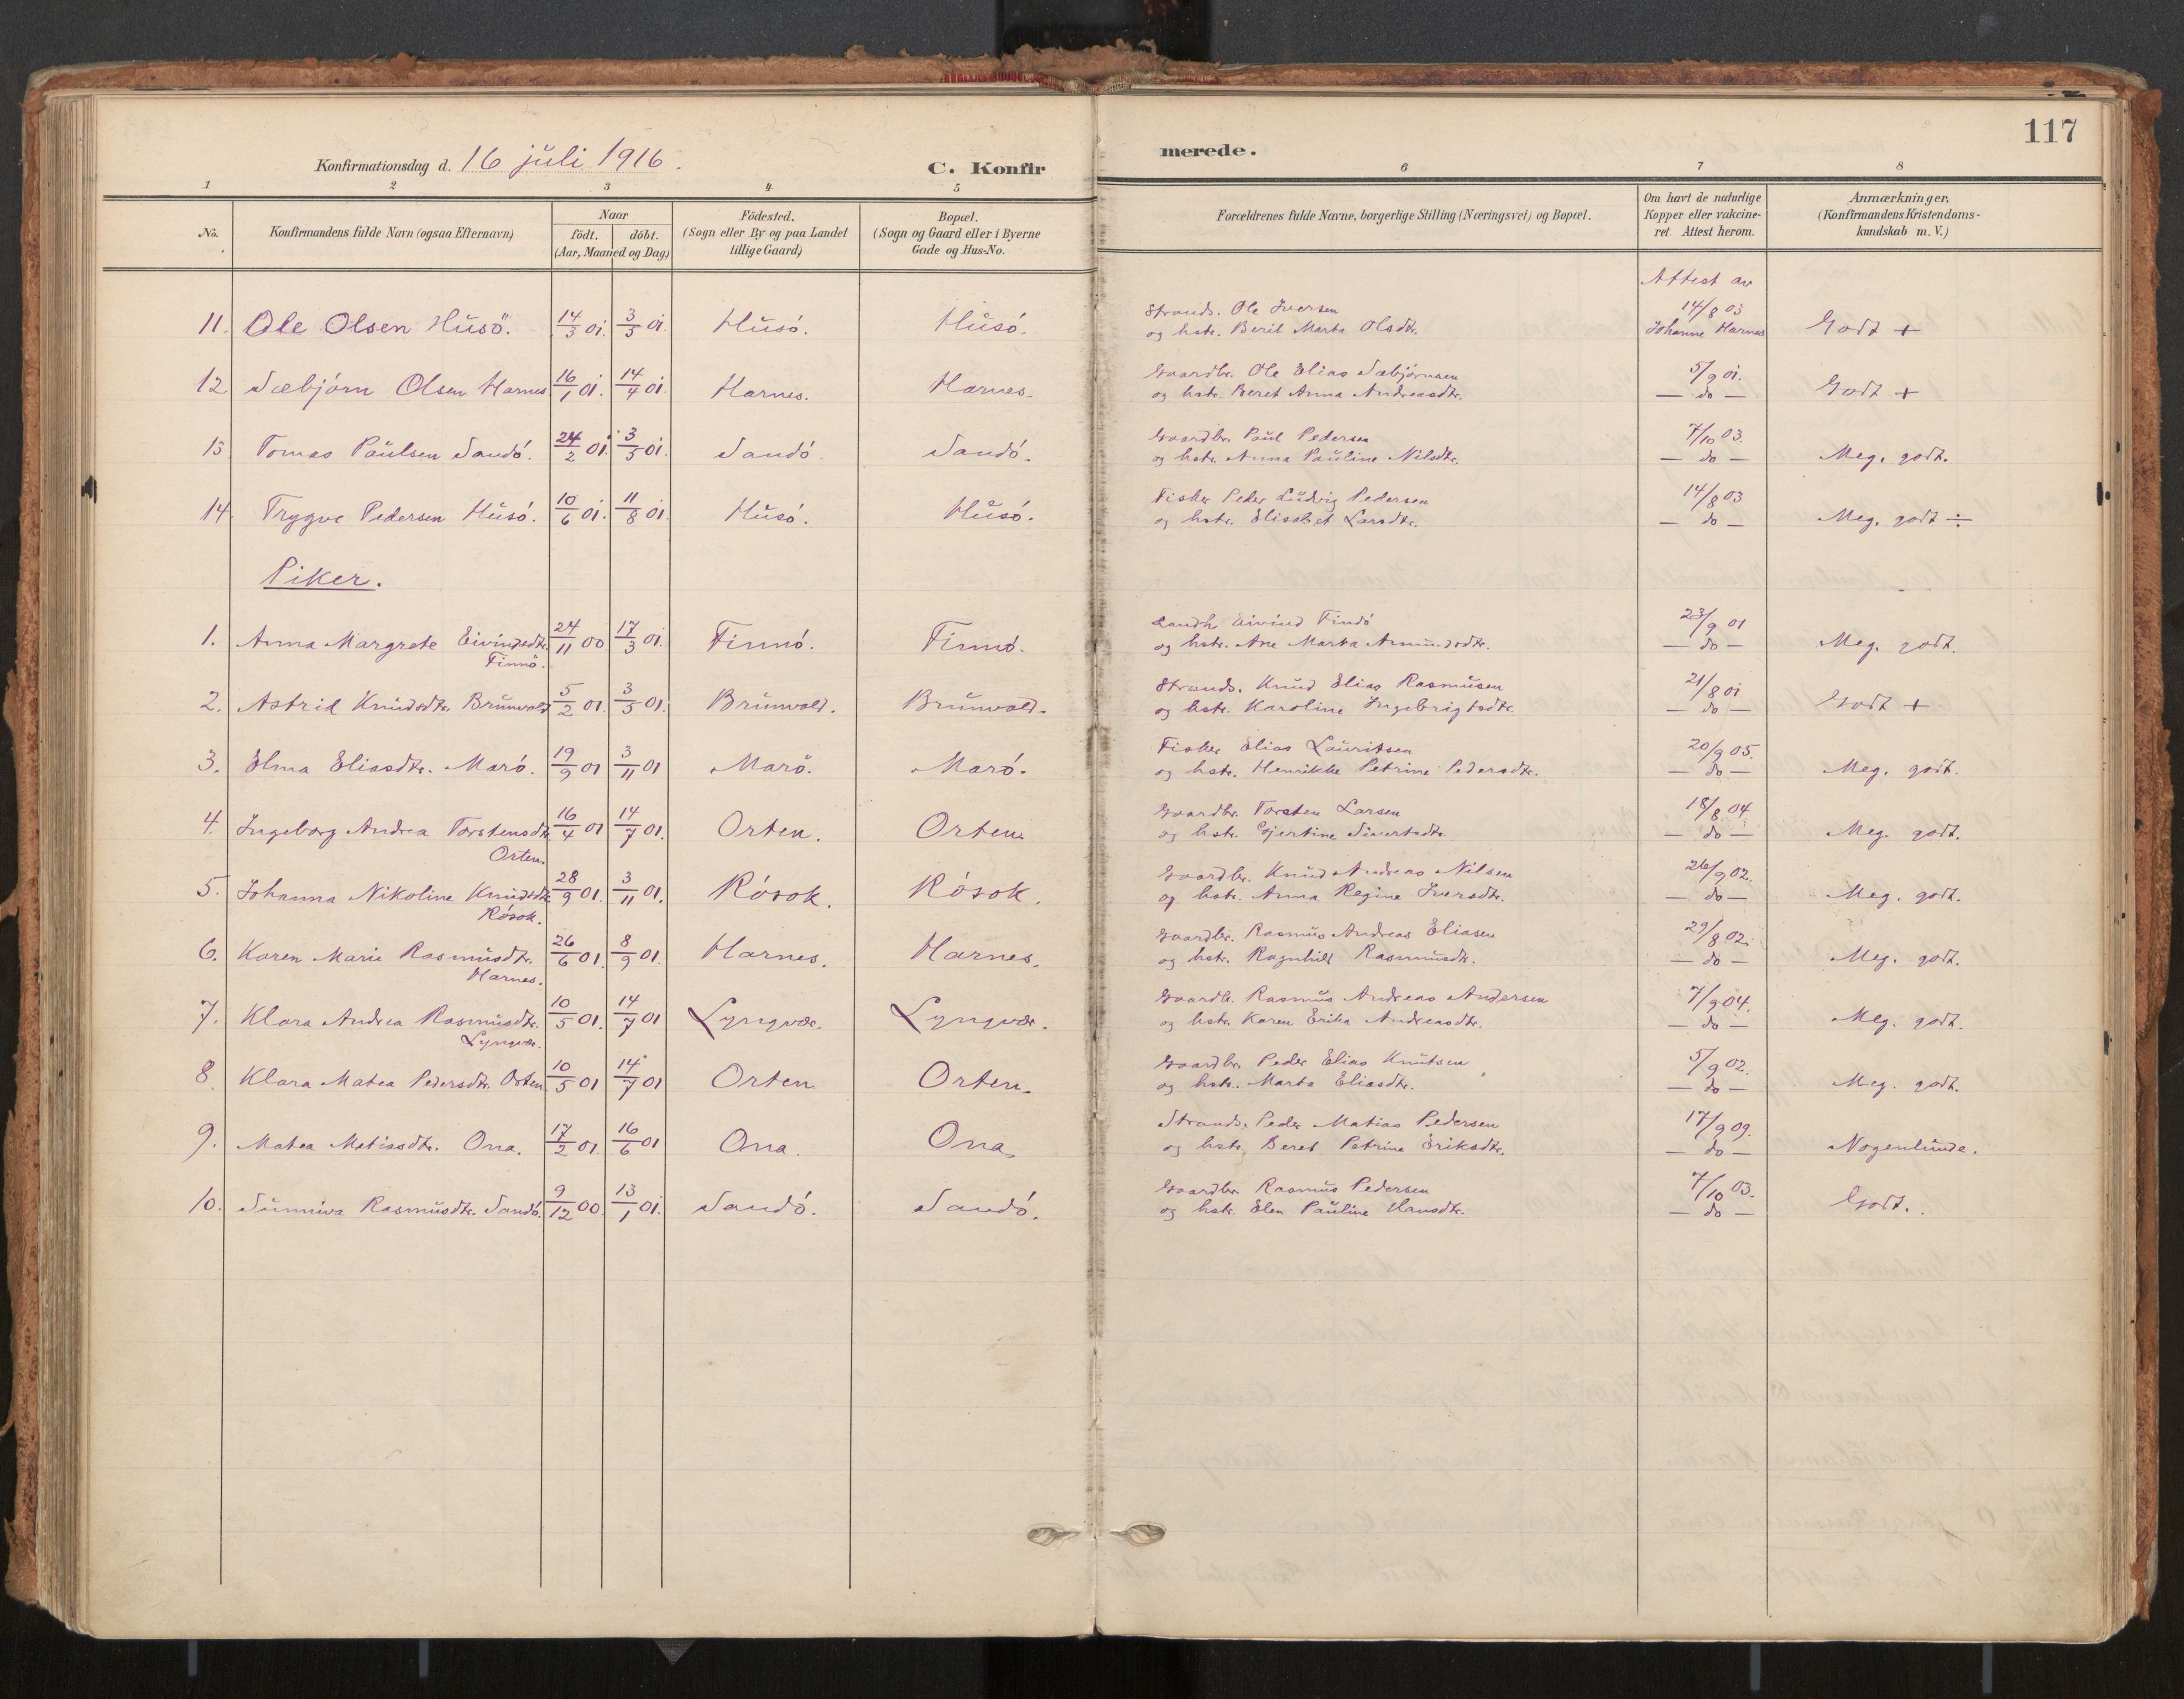 117
Konfirmationsdag d. 16 juli 1916. C. Konfirmerede.
1 2 3 4 5 6 7 8
No. Konfirmandens fulde Navn (ogsaa Efternavn) Naar födt. döbt. (Aar, Maaned og Dag) Födested. (Sogn eller By og paa Landet tillige Gaard) Bopæl. (Sogn og Gaard eller i Byerne Gade og Hus-No. Forældrenes fulde Navne, borgerlige Stilling (Næringsvei) og Bopæl. Om havt de naturlige Kopper eller vakcineret Attest herom. Anmærkninger, (Konfirmandens Kristendomskundskab m. V.)
Attest av
11. Ole Olsen Husö. 14/3 01. 3/5 01. Husö. Husö. Strands. Ole Iversen 14/8 03 Godt +
og hstr. Berit Marta Olsdtr. Johanne Harnes
12 Sæbjörn Olsen Harnes 16/1 01. 14/4 01. Harnes. Harnes. Gaardbr. Ole Elias Sæbjörnsen 5/9 01. Godt +
og hstr. Beret Anna Andreasdtr. — do —
13 Tomas Paulsen Sandö. 24/2 01. 3/5 01. Sandö Sandö. Gaardbr. Paul Pedersen 7/10 03. Meg. godt.
og hstr. Anna Pauline Nilsdtr. — do —
14. Trygve Pedersen Husö. 10/6 01. 11/8 01 Husö. Husö. Fisker Peder Ludvig Pedersen 14/8 03 Meg. godt ÷
og hstr. Elisabet Larsdtr. — do —
Piker.
1. Anna Margrete Eivindsdtr. Finnö. 24/11 00 17/3 01. Finnö. Finnö. Landh. Eivind Findö 23/9 01 Meg. godt.
og hstr. Ane Marta Amundsdtr. — do —
2. Astrid Knudsdtr. Brunvold 5/2 01. 3/5 01. Brunvold. Brunvold. Strands. Knud Elias Rasmusen 21/8 01 Godt +
og hstr. Karoline Ingebrigtsdtr. — do —
3. Elma Eliasdtr. Marö. 19/9 01 3/11 01 Marö. Marö. Fisker Elias Lauritsen 20/9 05. Meg. godt.
og hstr. Henrikke Petrine Pedersdtr. — do —
4. Ingeborg Andrea Torstensdtr. Orten. 16/4 01 14/7 01. Orten. Orten. Gaardbr. Torsten Larsen 18/8 04. Meg. godt.
og hstr. Gjertine Sivertsdtr. — do —
5. Johanna Nikoline Knudsdtr. Rösok. 28/9 01. 3/11 01. Rösok. Rösok. Gaardbr. Knud Andreas Nilsen 26/9 02. Meg. godt.
og hstr. Anna Regine Iversdtr. — do —
6. Karen Marie Rasmusdtr. Harnes. 26/6 01. 8/9 01. Harnes. Harnes. Gaardbr. Rasmus Andreas Eliasen 29/8 02. Meg. godt.
og hstr. Ragnhild Rasmusdtr. — do —
7. Klara Andrea Rasmusdtr. Lyngvær. 10/5 01. 14/7 01 Lyngvær. Lyngvær. Gaardb. Rasmus Andreas Andersen 7/9 04. Meg. godt.
og hstr. Karen Erika Andreasdtr. — do —
8. Klara Matea Pedersdtr. Orten 10/5 01 14/7 01 Orten Orten. Gaardbr. Peder Elias Knutsen 5/9 02. Meg. godt.
og hstr. Marta Eliasdtr. — do —
9. Matea Matiasdtr. Ona. 17/2 01. 16/6 01 Ona. Ona. Strands. Peder Matias Pedersen 17/9 09. Nogenlunde.
og hstr. Beret Petrine Eriksdtr. — do —
10. Sunniva Rasmusdtr. Sandö. 9/12 00. 13/1 01. Sandö. Sandö. Gaardbr. Rasmus Pedersen 7/10 03. Godt.
og hstr. Elen Pauline — do —